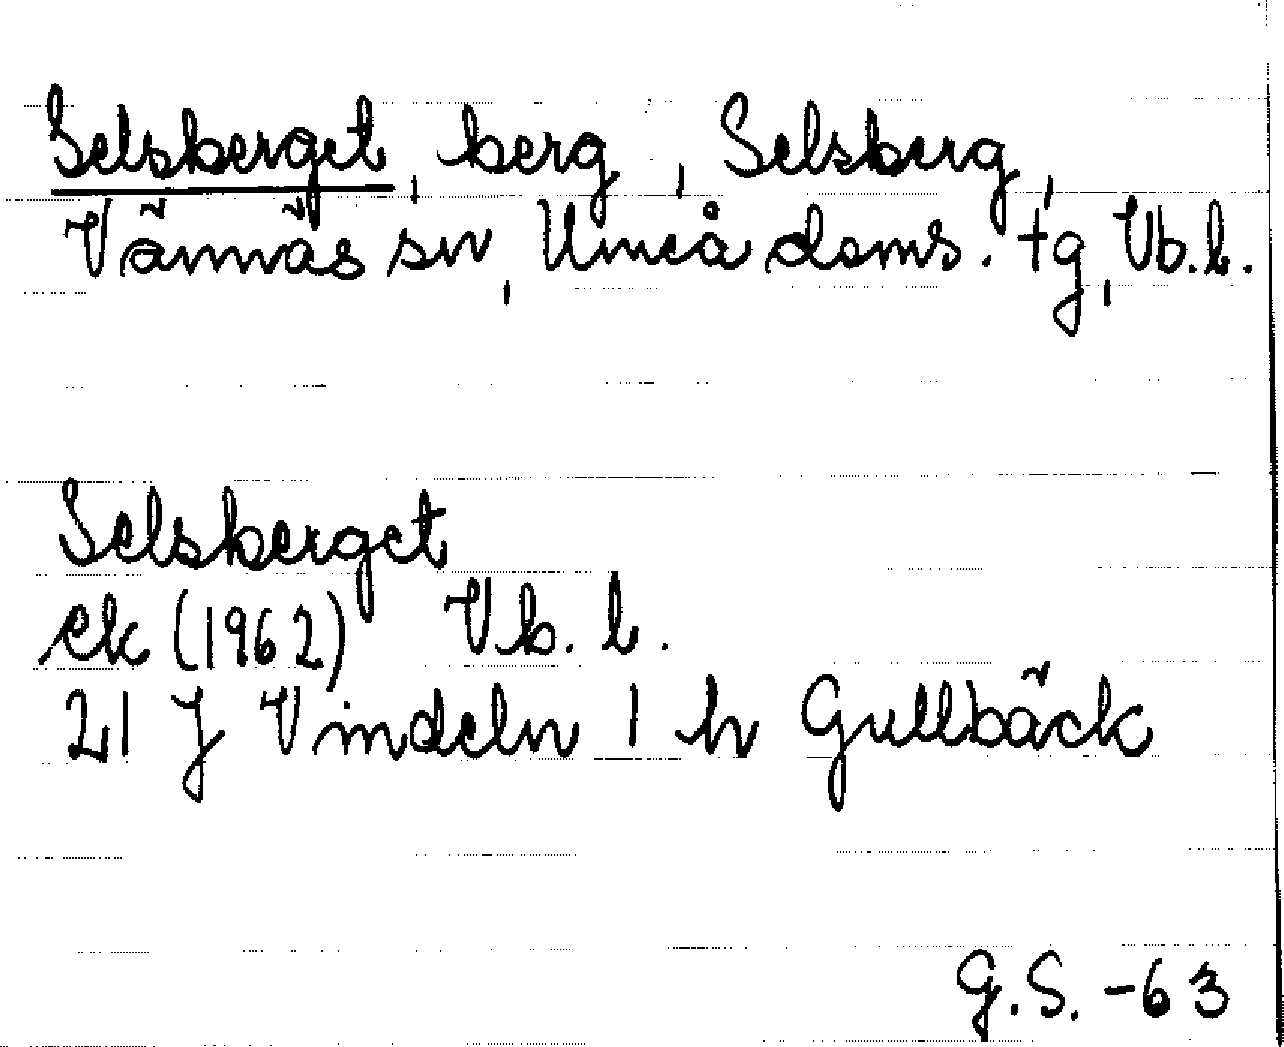 Selsberget, berg, Selsberg,
Vännäs sn, Umeå doms. tg, Vb. l.
Selsberget
ek (1962) Vb. l.
21 J Vindeln 1 h Gullbäck
G.S. -63